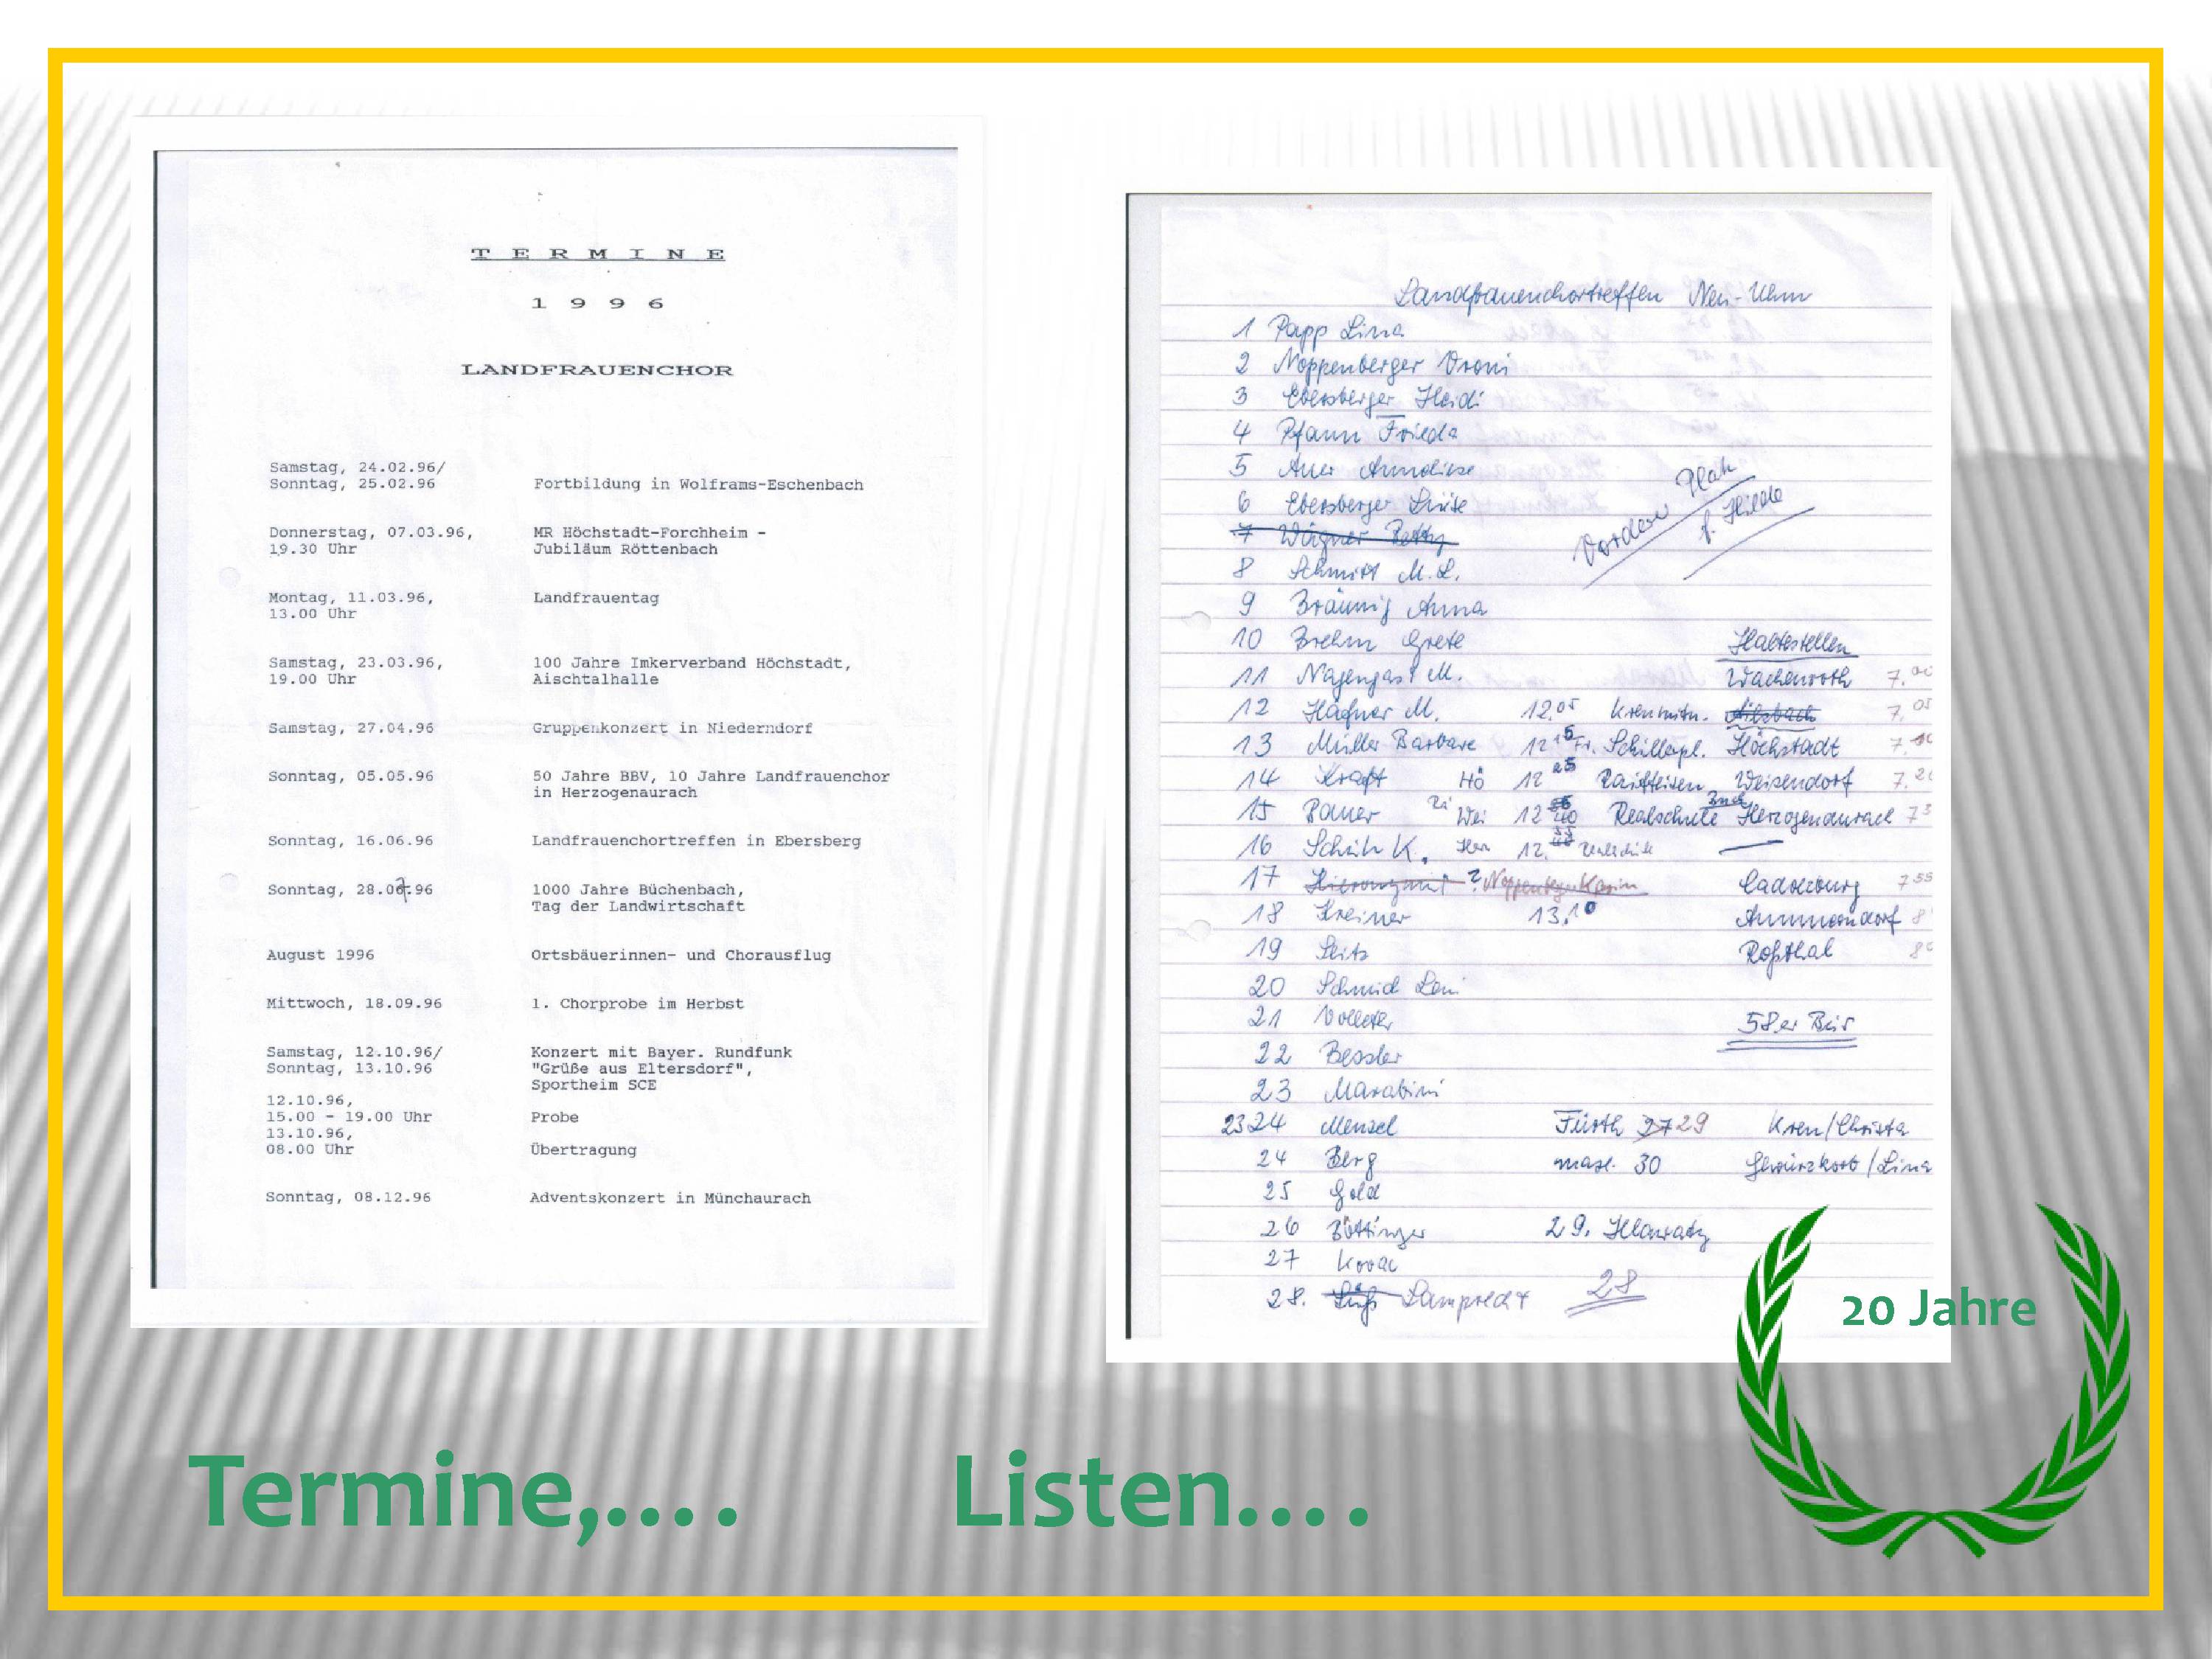 T E R M I N E
1 9 9 6
LANDFRAUENCHOR
Samstag, 24.02.96/
Sonntag, 25.02.96 Fortbildung in Wolframs-Eschenbach
Donnerstag, 07.03.96, MR Höchstadt-Forchheim -
19.30 Uhr Jubiläum Röttenbach
Montag, 11.03.96, Landfrauentag
13.00 Uhr
Samstag, 23.03.96, 100 Jahre Imkerverband Höchstadt,
19.00 Uhr Aischtalhalle
Samstag, 27.04.96 Gruppenkonzert in Niederndorf
Sonntag, 05.05.96 50 Jahre BBV, 10 Jahre Landfrauenchor
in Herzogenaurach
Sonntag, 16.06.96 Landfrauenchortreffen in Ebersberg
Sonntag, 28.07.96 1000 Jahre Büchenbach,
Tag der Landwirtschaft
August 1996 Ortsbäuerinnen- und Chorausflug
Mittwoch, 18.09.96 1. Chorprobe im Herbst
Samstag, 12.10.96/ Konzert mit Bayer. Rundfunk
Sonntag, 13.10.96 "Grüße aus Eltersdorf",
Sportheim SCE
12.10.96,
15.00 - 19.00 Uhr Probe
13.10.96,
08.00 Uhr Übertragung
Sonntag, 08.12.96 Adventskonzert in Münchaurach
Landfrauenchortreffen Neu-Ulm
1 Papp Lina
2 Noppenberger Vroni
3 Ebersberger Heidi
4 Pfann Frieda
5 Auer Anneliese
6 Ebersberger
7 Wagner Betty
Vorderer Platz
f. Hilde
8 Schmitt M.L.
9 Bräunig Anna
10 Brehm Grete Haltestellen
11 Nagengast M. Wachenroth 7.00
12 Hafner M. 12.05 7.05
13 Müller Barbara 12 15 Schillerpl. Höchstadt
14 Kraft Hö 12 25 Raiffeisen Weisendorf
15 Bauer Wei 12 40 Realschule Herzogenaurach
16 Schuh K. 12.
17 Noppenberger Karin Cadolzburg 7 55
18 Kreiner 13.10 Ammerndorf
19 Seitz Roßthal
20 Schmid Leni
21
22 Bessler
23 Marabini 58er Bus
23 24 Menzel Fürth 27 29 Kren/Christa
24 Berg max. 30 Gewürzkorb/Lina
25 Gold
26 Böttinger 29.
27 Kovac
28. Süß Lamprecht 28
20 Jahre
Termine,.... Listen....